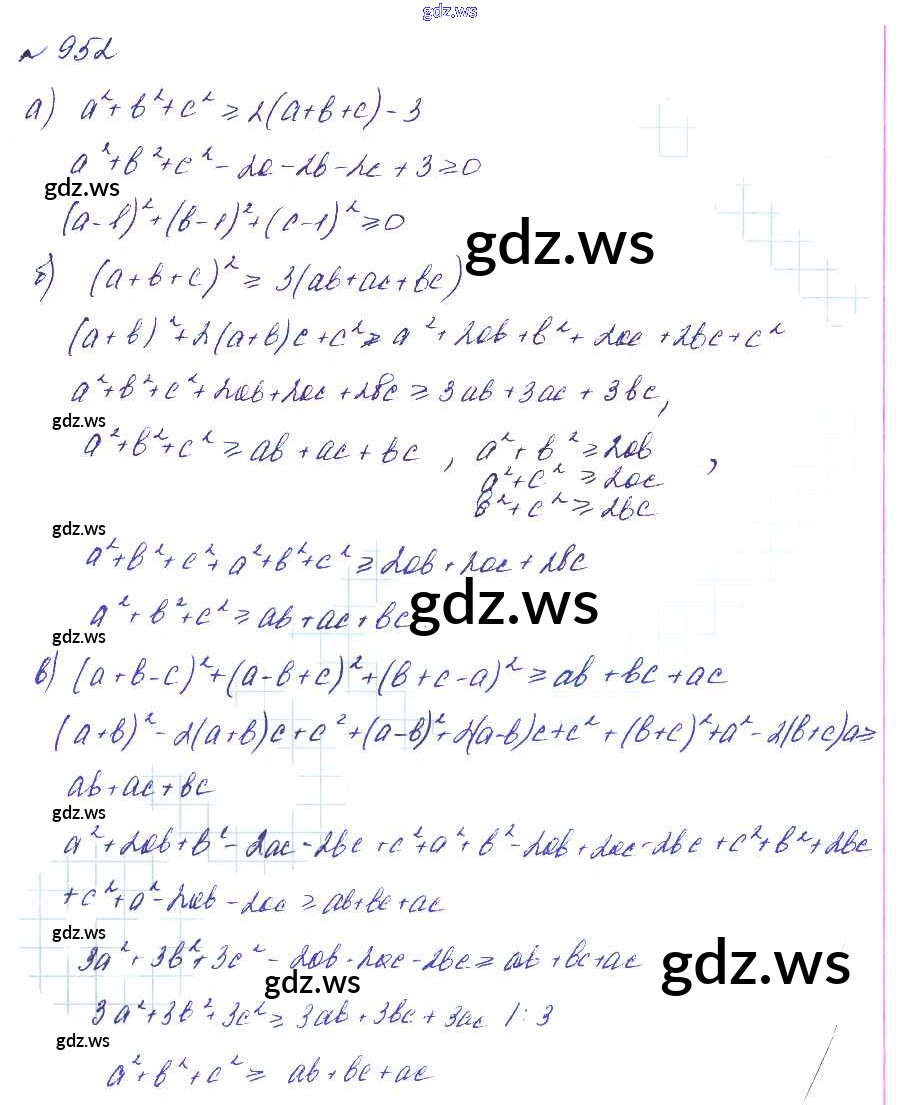 gdz.ws
№ 952
а) a²+b²+c² ≥ 2(a+b+c)-3
a²+b²+c²-2a-2b-2c+3≥0
gdz.ws
(a-1)²+(b-1)²+(c-1)²≥0
gdz.ws
б) (a+b+c)² ≥ 3(ab+ac+bc)
(a+b)²+2(a+b)c+c² ≥ a²+2ab+b²+2ac+2bc+c²
a²+b²+c²+2ab+2ac+2bc ≥ 3ab+3ac+3bc,
gdz.ws
a²+b²+c² ≥ ab+ac+bc , a²+b² ≥ 2ab ,
a²+c² ≥ 2ac
b²+c² ≥ 2bc
gdz.ws
a²+b²+c²+a²+b²+c² ≥ 2ab+2ac+2bc
gdz.ws
a²+b²+c² ≥ ab+ac+bc
gdz.ws
в) (a+b-c)²+(a-b+c)²+(b+c-a)² ≥ ab+bc+ac
(a+b)²-2(a+b)c+c²+(a-b)²+2(a-b)c+c²+(b+c)²+a²-2(b+c)a≥
ab+ac+bc
gdz.ws
a²+2ab+b²-2ac-2bc+c²+a²+b²-2ab+2ac-2bc+c²+b²+2bc
+c²+a²-2ab-2ac ≥ ab+bc+ac
gdz.ws
3a²+3b²+3c²-2ab-2ac-2bc ≥ ab+bc+ac
gdz.ws
gdz.ws
3a²+3b²+3c² ≥ 3ab+3bc+3ac /:3
gdz.ws
a²+b²+c² ≥ ab+bc+ac